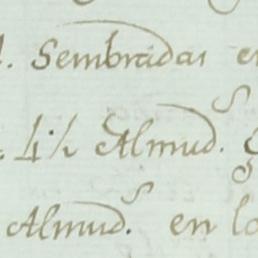 Sembradas e
4½ Almud.s
Almud.s en lo